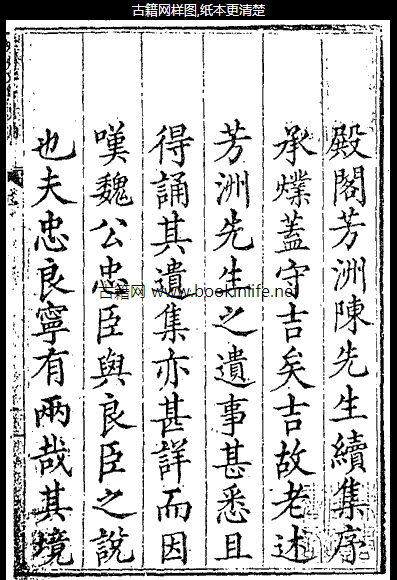 古籍网样图,纸本更清楚
殿閣芳洲陳先生續集序
承㸁蓋守吉矣吉故老述
芳洲先生之遺事甚悉且
得誦其遺集亦甚詳而因
嘆魏公忠臣與良臣之說
也夫忠良寧有兩哉其境
古籍网 www.bookinlife.net